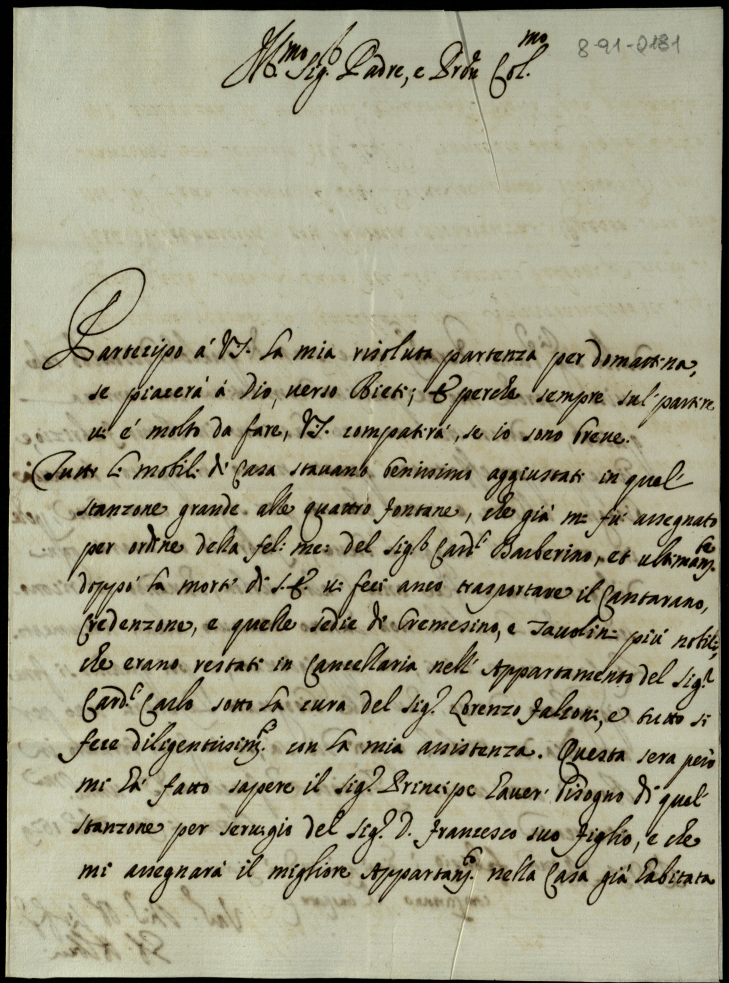 8-91-0181
Ill.mo Sig.r Padre, e Prõn Col.mo
Partecipo à V.S. la mia risoluta partenza per domattina,
se piacerà à Dio, verso Rieti; E perche sempre sul' partire
vi è molto da fare, V.S. compatirà, se io sono breve.
Tutti li mobili di Casa stavano benissimo aggiustati in quel'
stanzone grande alle quattro fontane, che già mi fù assegnato
per ordine della fel: me: del Sig.r Card.l Barberino, et ultimam.te
doppò la morte di S.E. vi feci anco trasportare il Cantarano,
Credenzone, e quelle sedie di Cremesino, e Tavolini più nobili,
che erano restati in Cancellaria nell' Appartamento del Sig.r
Card.l Carlo sotto la cura del Sig.r Lorenzo Falconi, e tutto si
fece diligentissim.e con la mia assistenza. Questa sera però
mi hà fatto sapere il Sig.r Principe haver' bisogno di quel'
stanzone per servigio del Sig.r D. Francesco suo figlio, e che
mi assegnarà il migliore Appartam.to nella Casa già habitata